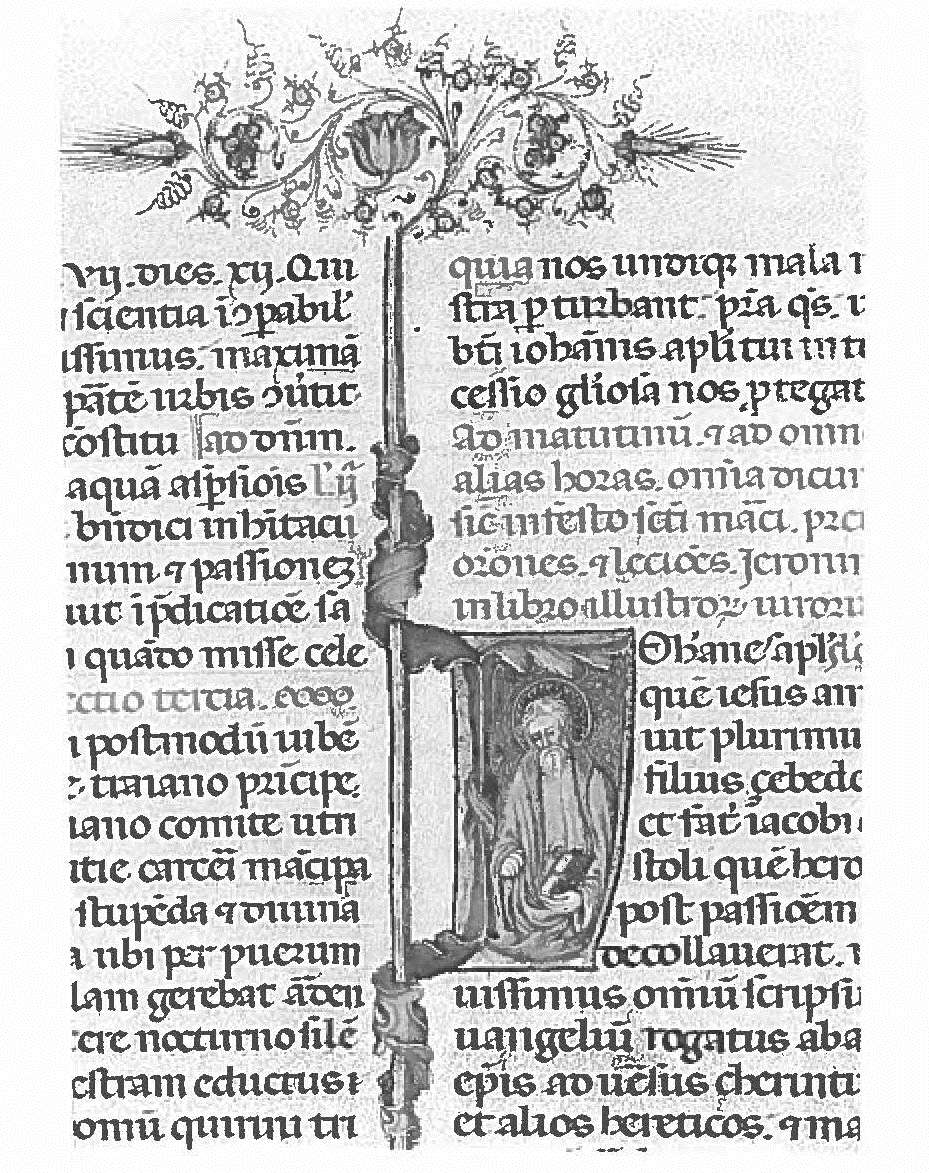 vij. dies. xij. Qui
scientia īɔpabil'
issimus. maximā
pātē urbis ɔūtit
cōstitu ad dn̄m.
aquā asp̄siois
bn̄dici in hītacu
num ⁊ passionez
uit īp̄dicatiōe sa
quādo misse cele
ectio tercia.
postmodū uibē
traiano prīcipe.
iano comite utri
itie carceī mācipa
stupēda ⁊ diuinā
a ubi per puerum
lam gerebat
cere nocturno silē
estram eductus
omū quiriuu tri
quia nos undiqꝫ mala n
stra p turbant. pr̄a qs̄.
bt̄i ioħānis apl'i tui
cessio gl'iosa nos ꝓtegat
Ad matutinū. ⁊ ad omn
alias horas. omīa dicun
sic̄ in festo sc̄ti mācī. prect
orōnes. ⁊ lectiōes. Jeronim
in libro illustroꝝ uiroru
Ohanes apl's
quē iesus am
uit plurimu
filius çebede
et fat' iacobi
stoli quē hero
post passiōem
decollauerat.
uissimus omīū scripsit
uangeliū rogatus ab a
ep̄is aduēsus cherintu
et alios hereticos. ⁊ ma